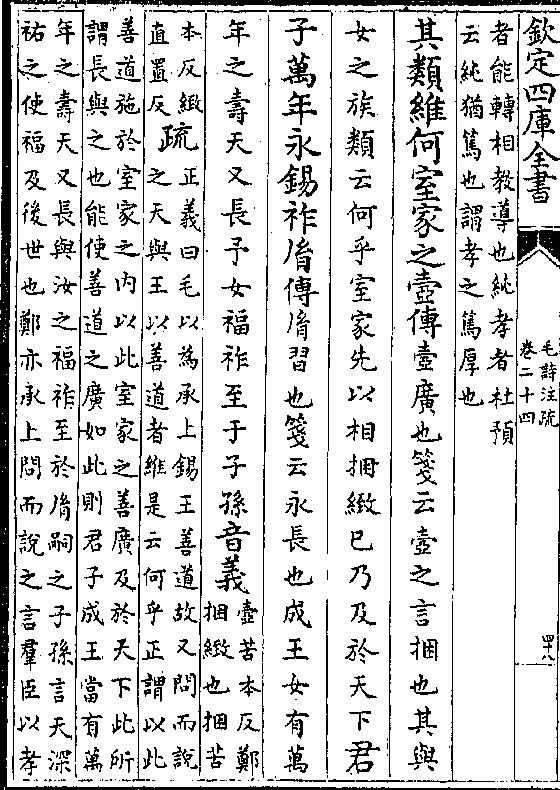 欽定四庫全書
毛詩注疏
卷二十四
四十八
者能轉相教導也純孝者杜預
云純猶篤也謂孝之篤厚也
其類維何室家之壼傳壼廣也箋云壼之言捆也其與
女之族類云何乎室家先以相捆緻已乃及於天下君
子萬年永錫祚胤傳胤習也箋云永長也成王女有萬
年之壽天又長予女福祚至于子孫音義壼苦本反鄭
捆緻也捆苦
本反緻
直置反疏正義曰毛以為承上錫王善道故又問而說
之天與王以善道者維是云何乎正謂以此
善道施於室家之内以此室家之善廣及於天下此所
謂長與之也能使善道之廣如此則君子成王當有萬
年之壽天又長與汝之福祚至於胤嗣之子孫言天深
祐之使福及後世也鄭亦承上問而說之言羣臣以孝